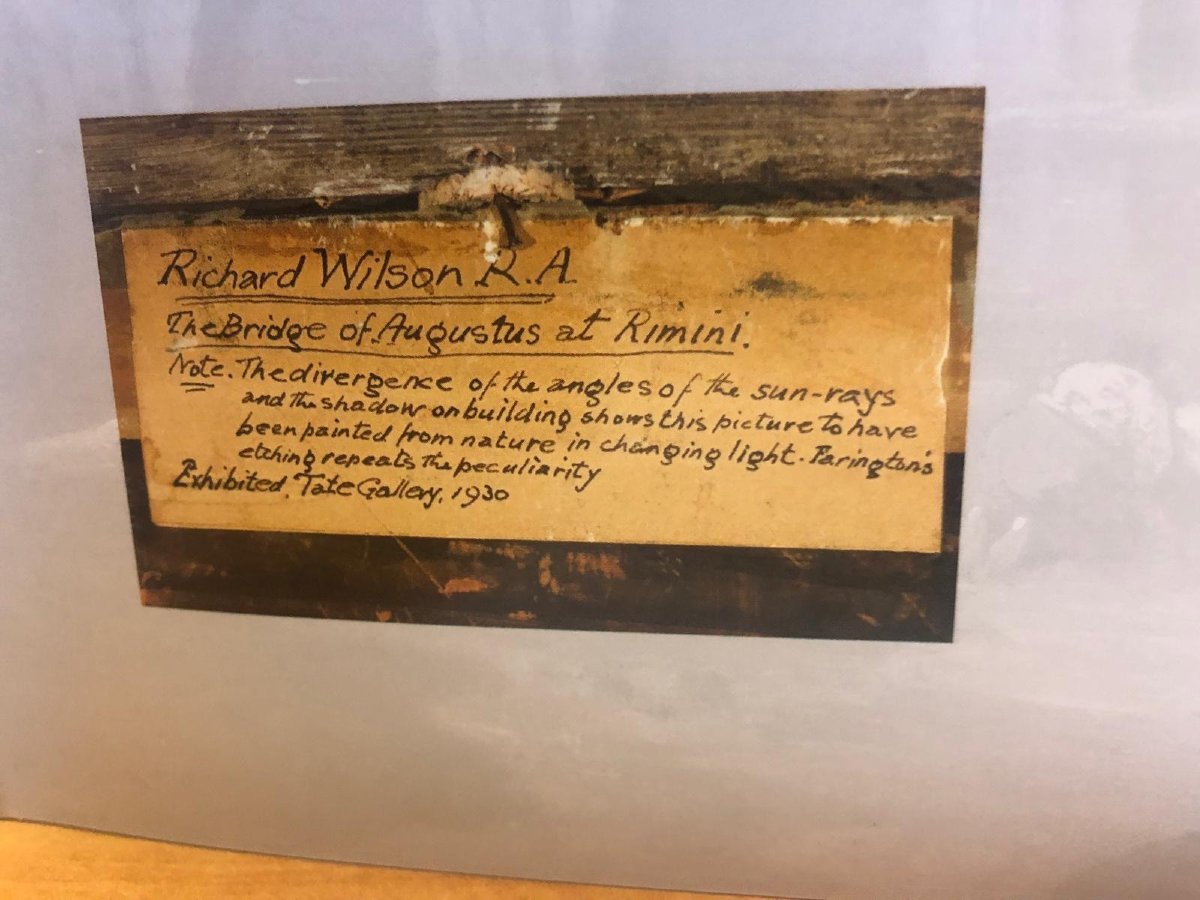 Richard Wilson R.A.
The Bridge of Augustus at Rimini.
Note. The divergence of the angles of the sun-rays
and the shadow on building shows this picture to have
been painted from nature in changing light. Farington's
etching repeats the peculiarity
Exhibited, Tate Gallery, 1930